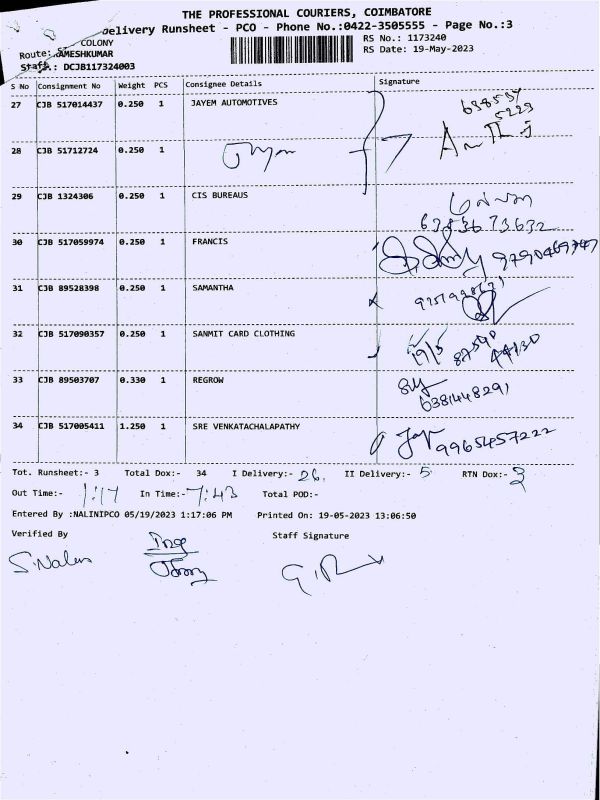 THE PROFESSIONAL COURIERS, COIMBATORE
Delivery Runsheet - PCO - Phone No.:0422-3505555 - Page No.:3
COLONY
RS No.: 1173240
Route: RAMESHKUMAR
RS Date: 19-May-2023
Staff.: DCJB117324003
S No Consignment No Weight PCS Consignee Details Signature
27 CJB 517014437 0.250 1 JAYEM AUTOMOTIVES
28 CJB 51712724 0.250 1
29 CJB 1324306 0.250 1 CIS BUREAUS
6383673632
30 CJB 517059974 0.250 1 FRANCIS
31 CJB 89528398 0.250 1 SAMANTHA
32 CJB 517090357 0.250 1 SANMIT CARD CLOTHING
19/5
33 CJB 89503707 0.330 1 REGROW
6381448291
34 CJB 517005411 1.250 1 SRE VENKATACHALAPATHY
9965457222
Tot. Runsheet:- 3 Total Dox:- 34 I Delivery:- 26. II Delivery:- 5 RTN Dox:- 3
Out Time:- 1:17 In Time:- 7:43 Total POD:-
Entered By :NALINIPCO 05/19/2023 1:17:06 PM Printed On: 19-05-2023 13:06:50
Verified By Staff Signature
S.Nalini